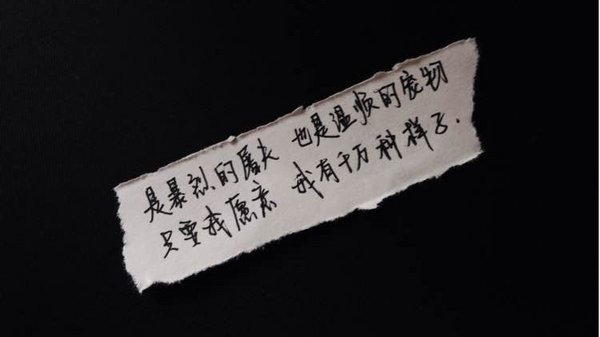 是暴烈的屠夫 也是温顺的宠物
只要我愿意 我有千万种样子.